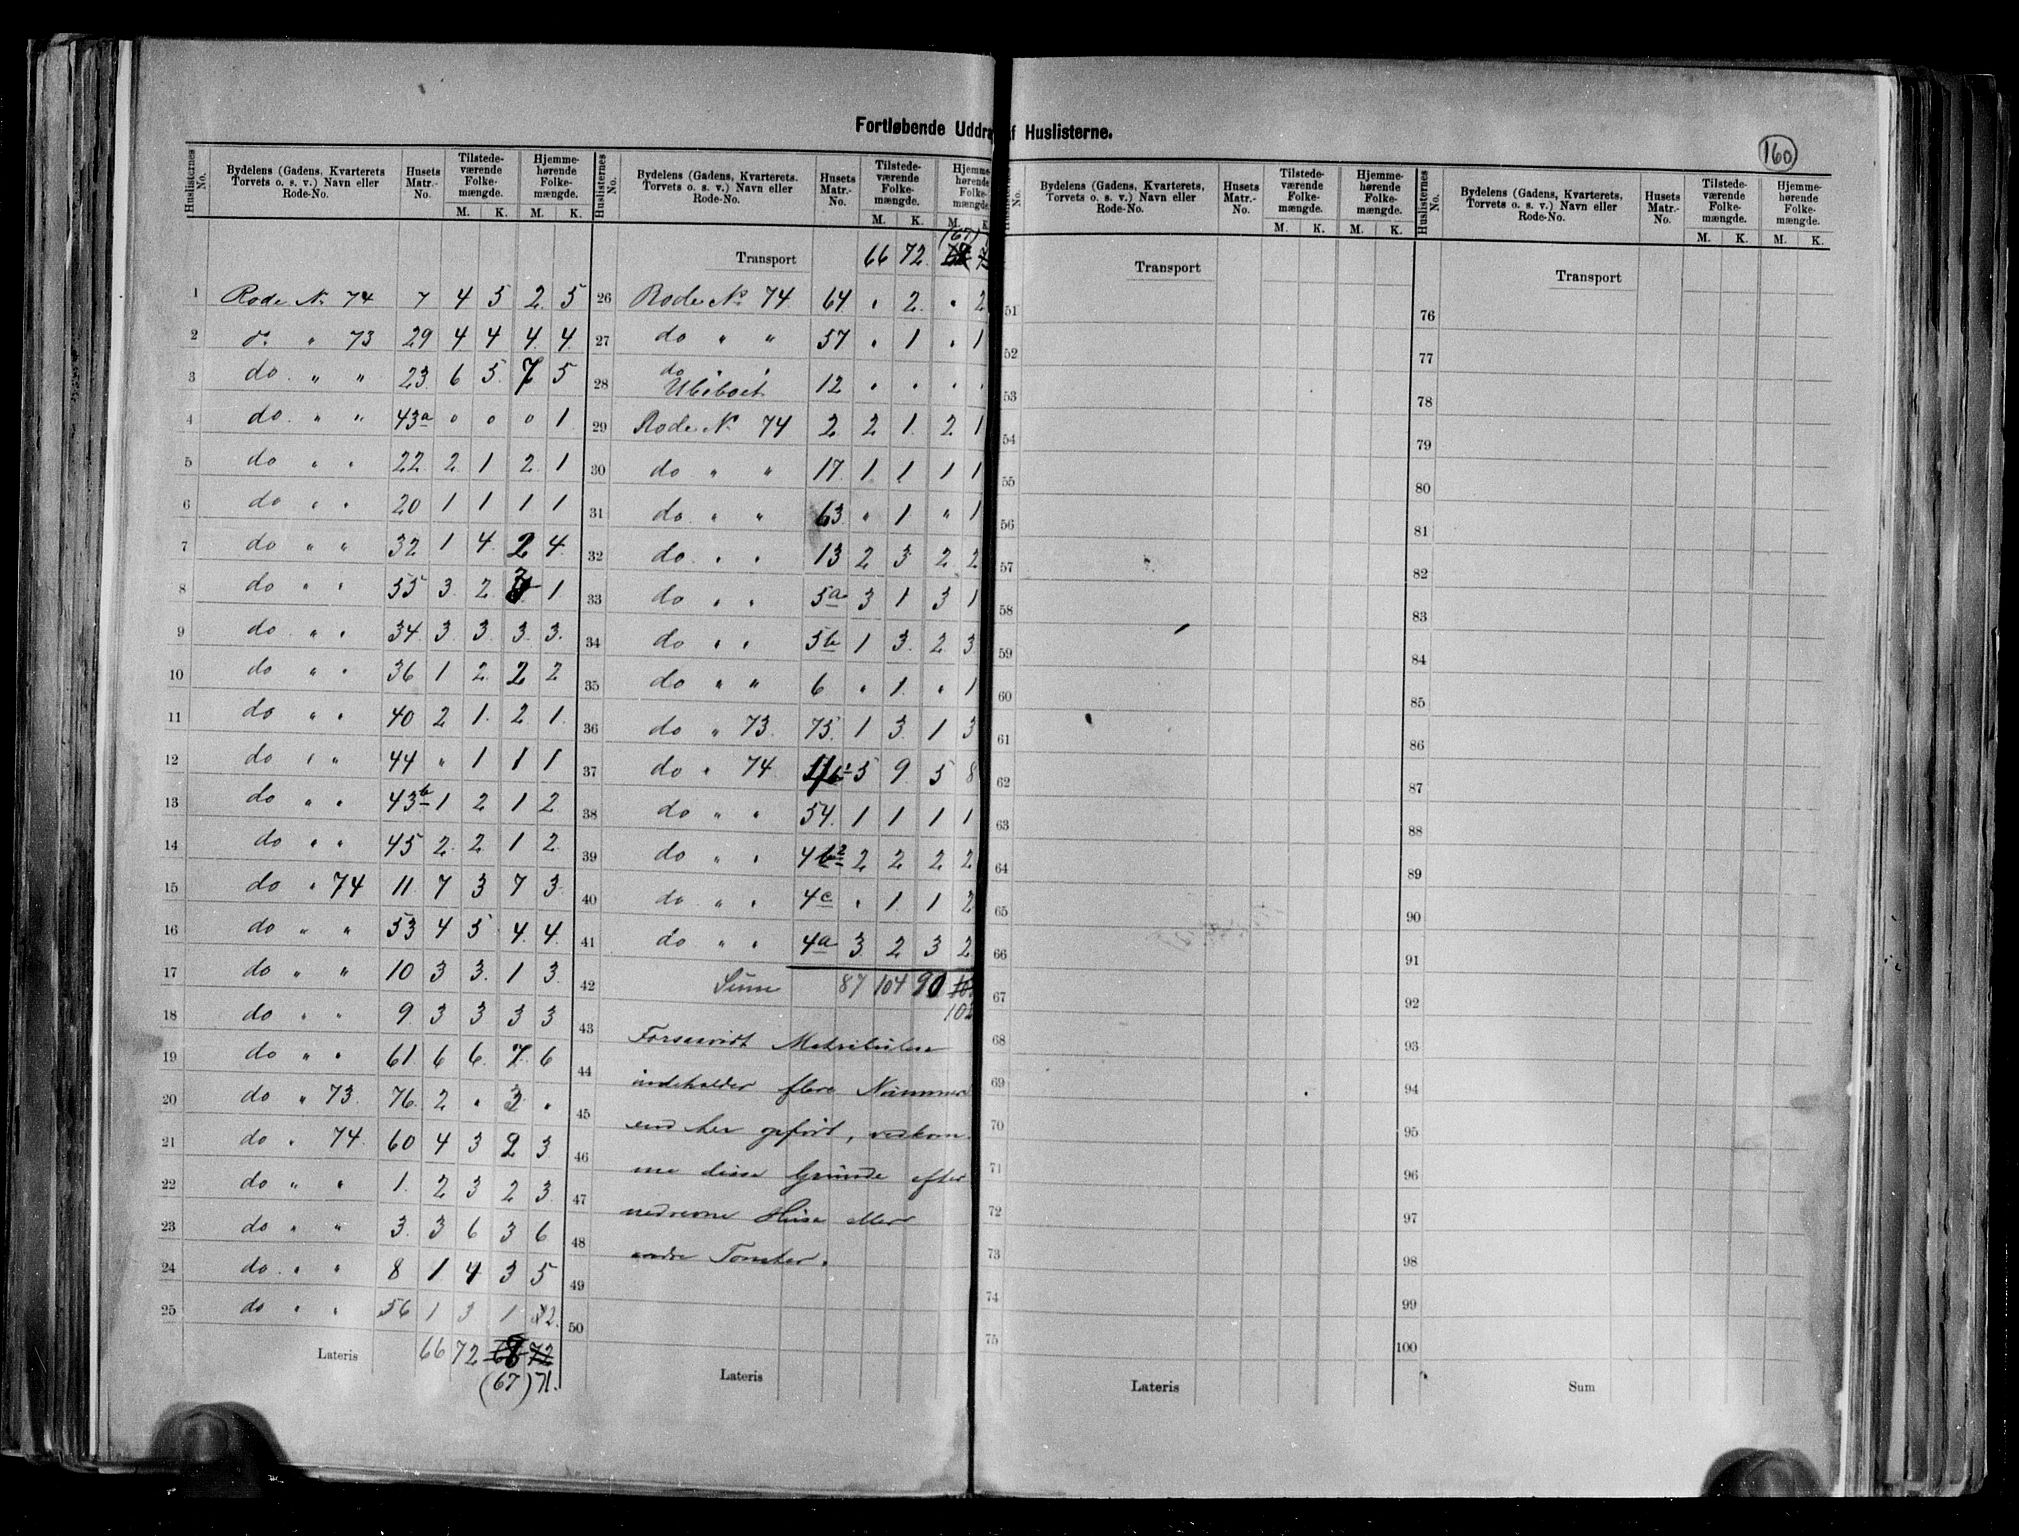 Fortløbende Uddr
f Huslisterne.
160
Huslisternes No. Bydelens (Gadens, Kvarterets Torvets o. s. v.) Navn eller Rode-No. Husets Matr.-No. Tilstede-værende Folke-mængde. M. K. Hjemme-hørende Folke-mængde. M. K.
1 Rode No 74 7 4 5 2 5
2 do " 73 29 4 4 4 4
3 do " " 23 6 5 7 5
4 do " " 43a 0 0 0 1
5 do " " 22 2 1 2 1
6 do " " 20 1 1 1 1
7 do " " 32 1 4 2 4
8 do " " 55 3 2 3 1
9 do " " 34 3 3 3 3
10 do " " 36 1 2 2 2
11 do " " 40 2 1 2 1
12 do " " 44 " 1 1 1
13 do " " 43b 1 2 1 2
14 do " " 45 2 2 1 2
15 do " 74 11 7 3 7 3
16 do " " 53 4 5 4 4
17 do " " 10 3 3 1 3
18 do " " 9 3 3 3 3
19 do " " 61 6 6 7 6
20 do " 73 76 2 " 3 "
21 do " 74 60 4 3 2 3
22 do " " 1 2 3 2 3
23 do " " 3 3 6 3 6
24 do " " 8 1 4 3 5
25 do " " 56 1 3 1 2
Lateris 66 72 68 72
(67) 71.
Huslisternes No. Bydelens (Gadens, Kvarterets. Torvets o. s. v.) Navn eller Rode-No. Husets Matr.-No. Tilstede-værende Folke-mængde. M. K. Hjemme-hørende Folke-mængde. M. K.
(67)
Transport 66 72 68
26 Rode No 74 64 " 2 " 2
27 do " " 57 " 1 " 1
28 do " " Ubeboet 12 " " " "
29 Rode No 74 2 2 1 2 1
30 do " " 17 1 1 1 1
31 do " " 63 " 1 " 1
32 do " " 13 2 3 2 2
33 do " " 5a 3 1 3 1
34 do " " 5b 1 3 2 3
35 do " " 6 " 1 " 1
36 do " 73 75 1 3 1 3
37 do " 74 4b1 5 9 5 8
38 do " " 54 1 1 1 1
39 do " " 4b2 2 2 2 2
40 do " " 4c " 1 1 2
41 do " " 4a 3 2 3 2
42 Sum 87 104 90
43 Forsaavidt Matrikulen
44 indeholder flere Nummere
45 end her opført, vedkom-
46 me disse Grunde efter
47 nedrevne Huse eller
48 andre Tomter.
49
50
Lateris
Huslisternes No. Bydelens (Gadens, Kvarterets, Torvets o. s. v.) Navn eller Rode-No. Husets Matr.-No. Tilstede-værende Folke-mængde. M. K. Hjemme-hørende Folke-mængde. M. K.
Transport
51
52
53
54
55
56
57
58
59
60
61
62
63
64
65
66
67
68
69
70
71
72
73
74
75
Lateris
Huslisternes No. Bydelens (Gadens, Kvarterets, Torvets o. s. v.) Navn eller Rode-No. Husets Matr.-No. Tilstede-værende Folke-mængde. M. K. Hjemme-hørende Folke-mængde. M. K.
Transport
76
77
78
79
80
81
82
83
84
85
86
87
88
89
90
91
92
93
94
95
96
97
98
99
100
Sum